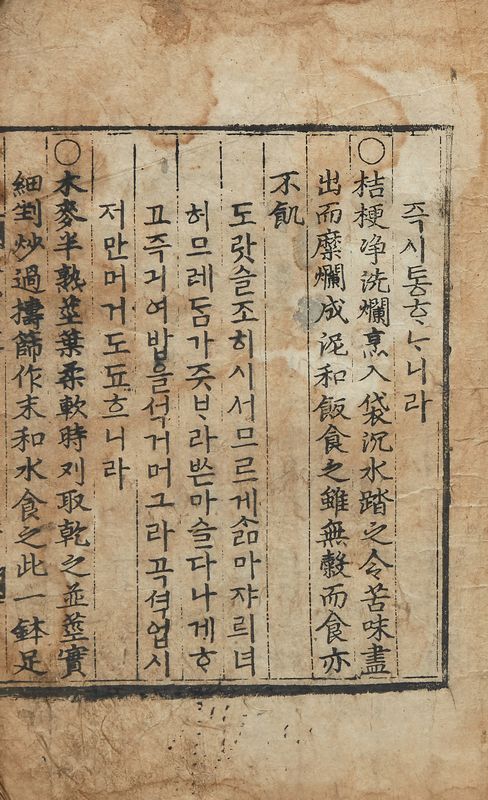 즉시통ᄒᆞᄂᆞ니라
○桔梗净洗爛烹入袋沉水踏之令苦味盡
出而糜爛成泥和飯食之雖無穀而食亦
不飢
도랏슬조히시서므르게ᄉᆞᆱ마쟈르녀
허므레ᄃᆞᆷ가ᄌᆞᆺᄇᆞ라ᄡᅳᆫ마슬다나게ᄒᆞ
고주긔여밥을석거머그라곡셕업시
저만머거도됴ᄒᆞ니라
○木麥半熟莖葉柔軟時刈取乾之並莖實
細剉炒過擣篩作末和水食之此一鉢足